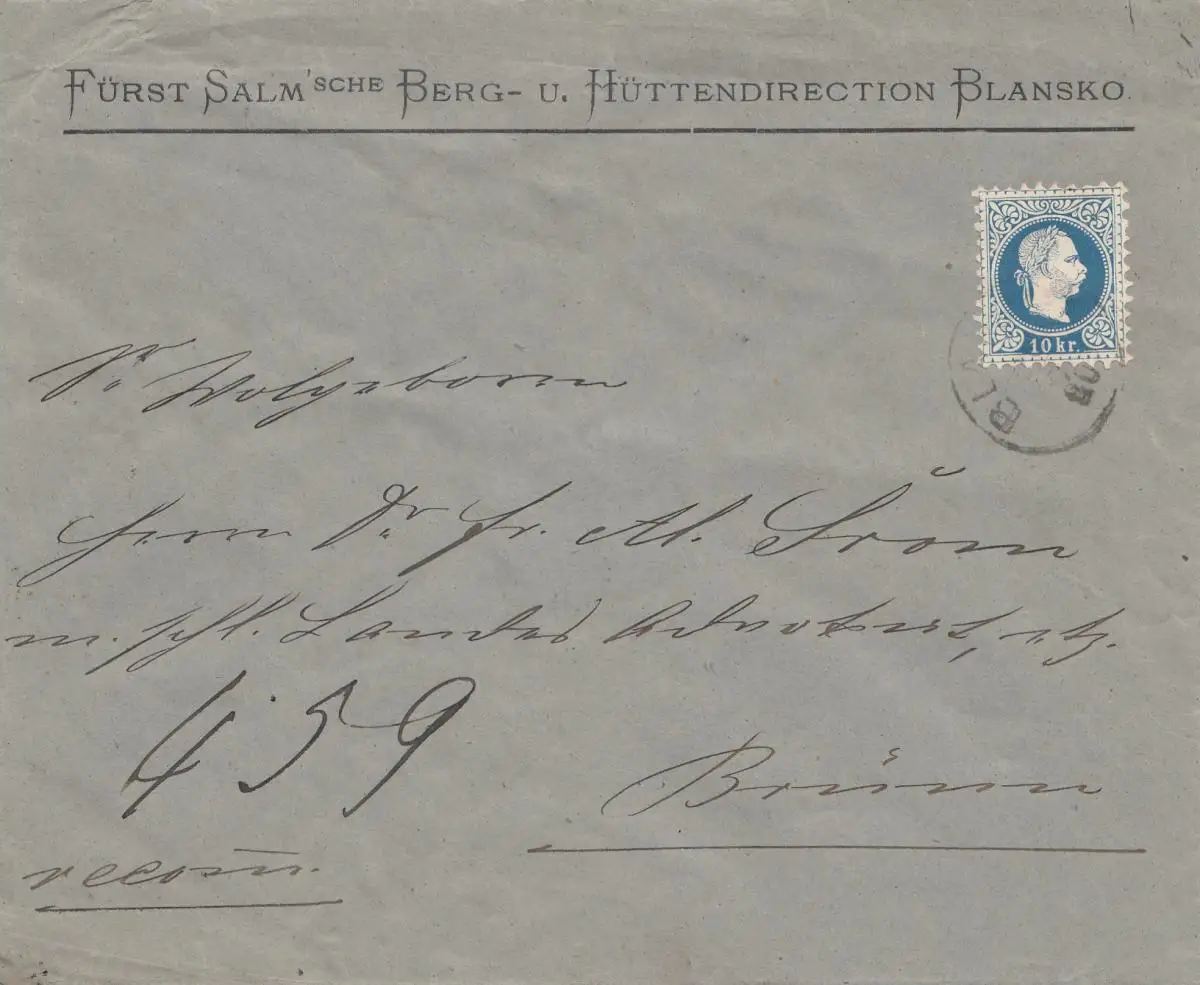 FÜRST SALM'SCHE BERG- U. HÜTTENDIRECTION BLANSKO.
10 kr.
BLA
Sr Wolgeboren
Herrn Dr. Fr. Al. Šrom
m. schl. Landes Advokat, etz.
459
Brünn
recom.